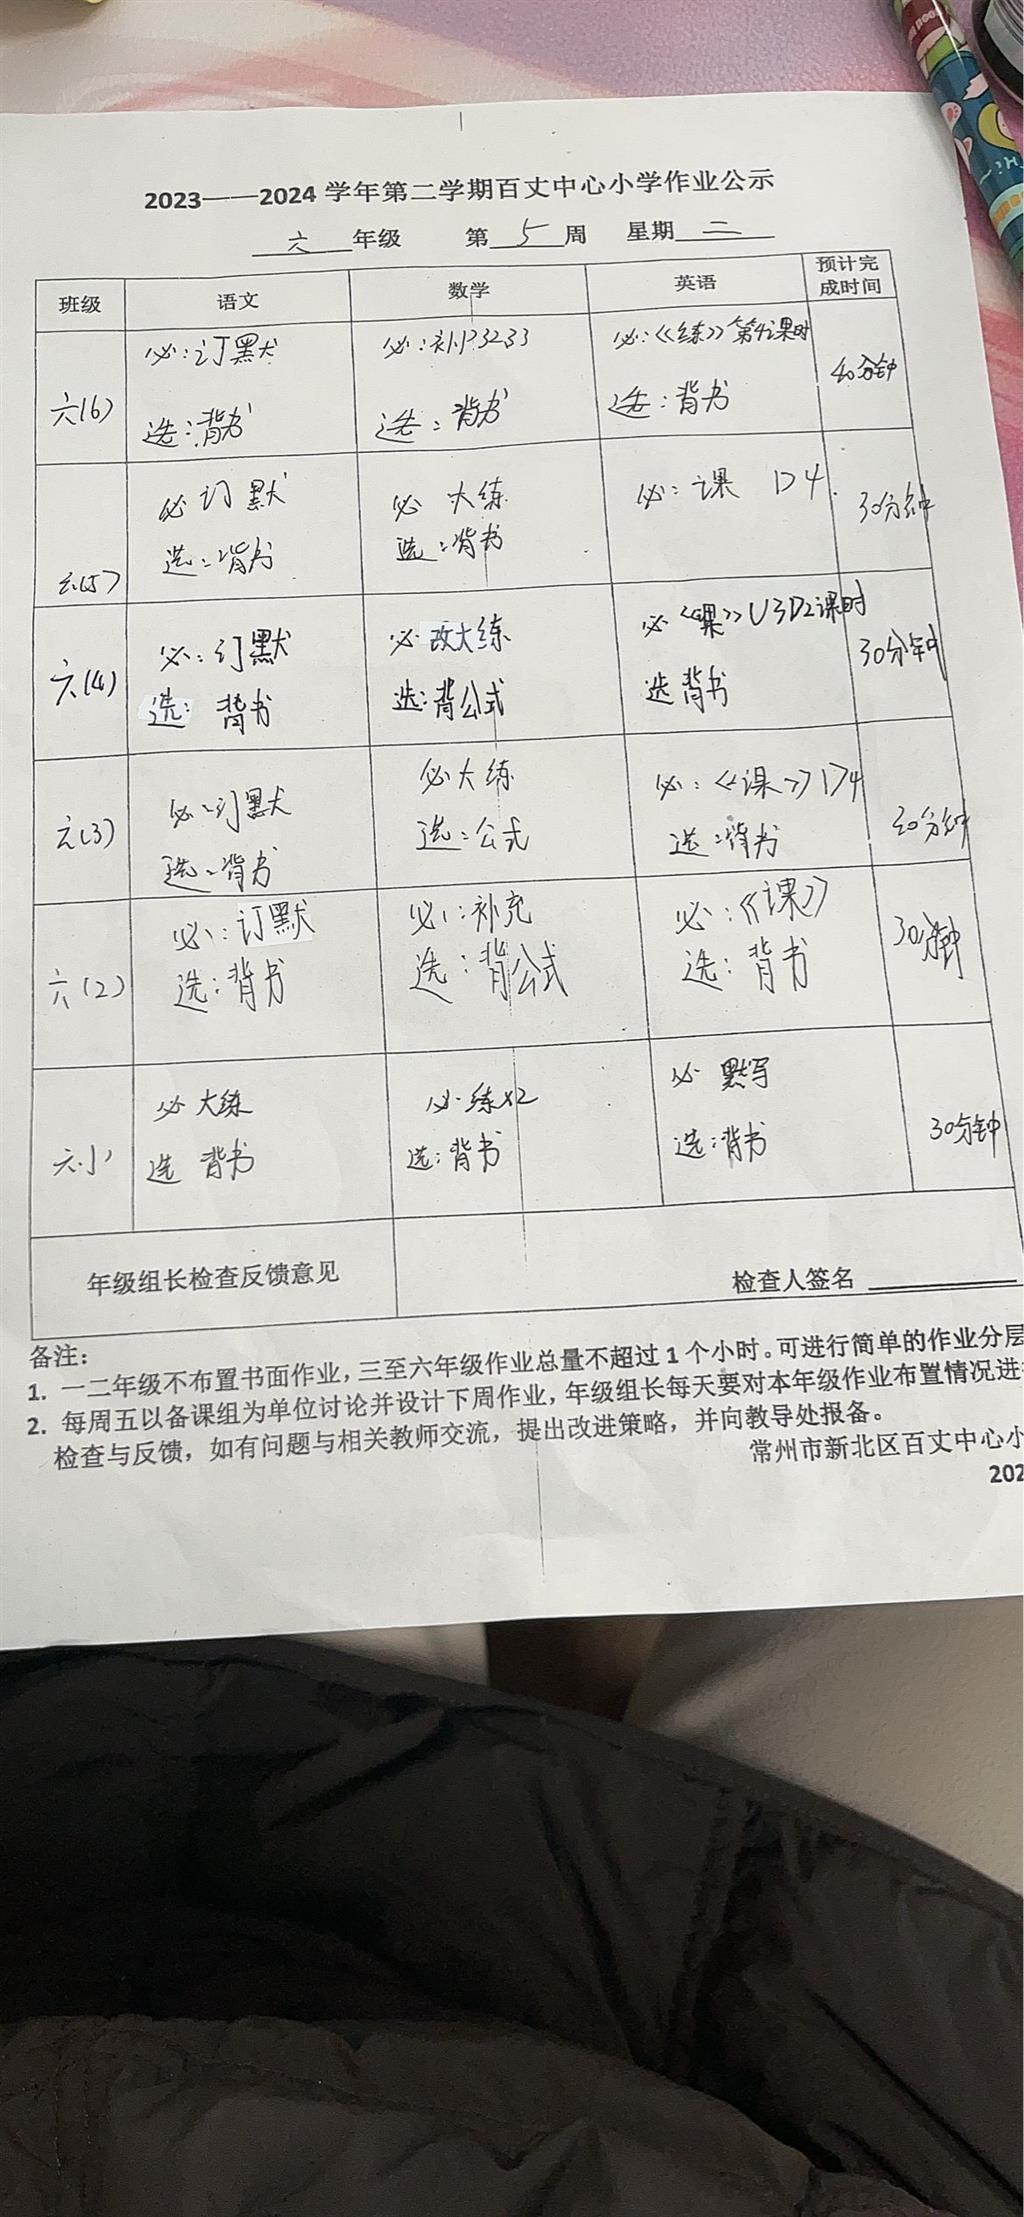 2023——2024学年第二学期百丈中心小学作业公示
六年级 第5周 星期二
班级 语文 数学 英语 预计完成时间
六(6) 必:订默 必:补P3233 必:《练》第4课时 40分钟
选:背书 选:背书 选:背书
六(5) 必 订默 必 大练 必:课 P4 30分钟
选:背书 选:背书
六(4) 必:订默 必 改大练 必《课》U3P2课时 30分钟
选: 背书 选:背公式 选 背书
六(3) 必:订默 必 大练 必:《课》P4 分钟
选:背书 选:公式 选:背书
六(2) 必:订默 必:补充 必:《课》 30分钟
选:背书 选:背公式 选:背书
六 必 大练 必 练x2 必 默写 30分钟
选 背书 选:背书 选:背书
年级组长检查反馈意见 检查人签名
备注:
1. 一二年级不布置书面作业,三至六年级作业总量不超过1个小时。可进行简单的作业分层
2. 每周五以备课组为单位讨论并设计下周作业,年级组长每天要对本年级作业布置情况进
检查与反馈,如有问题与相关教师交流,提出改进策略,并向教导处报备。
常州市新北区百丈中心小
202